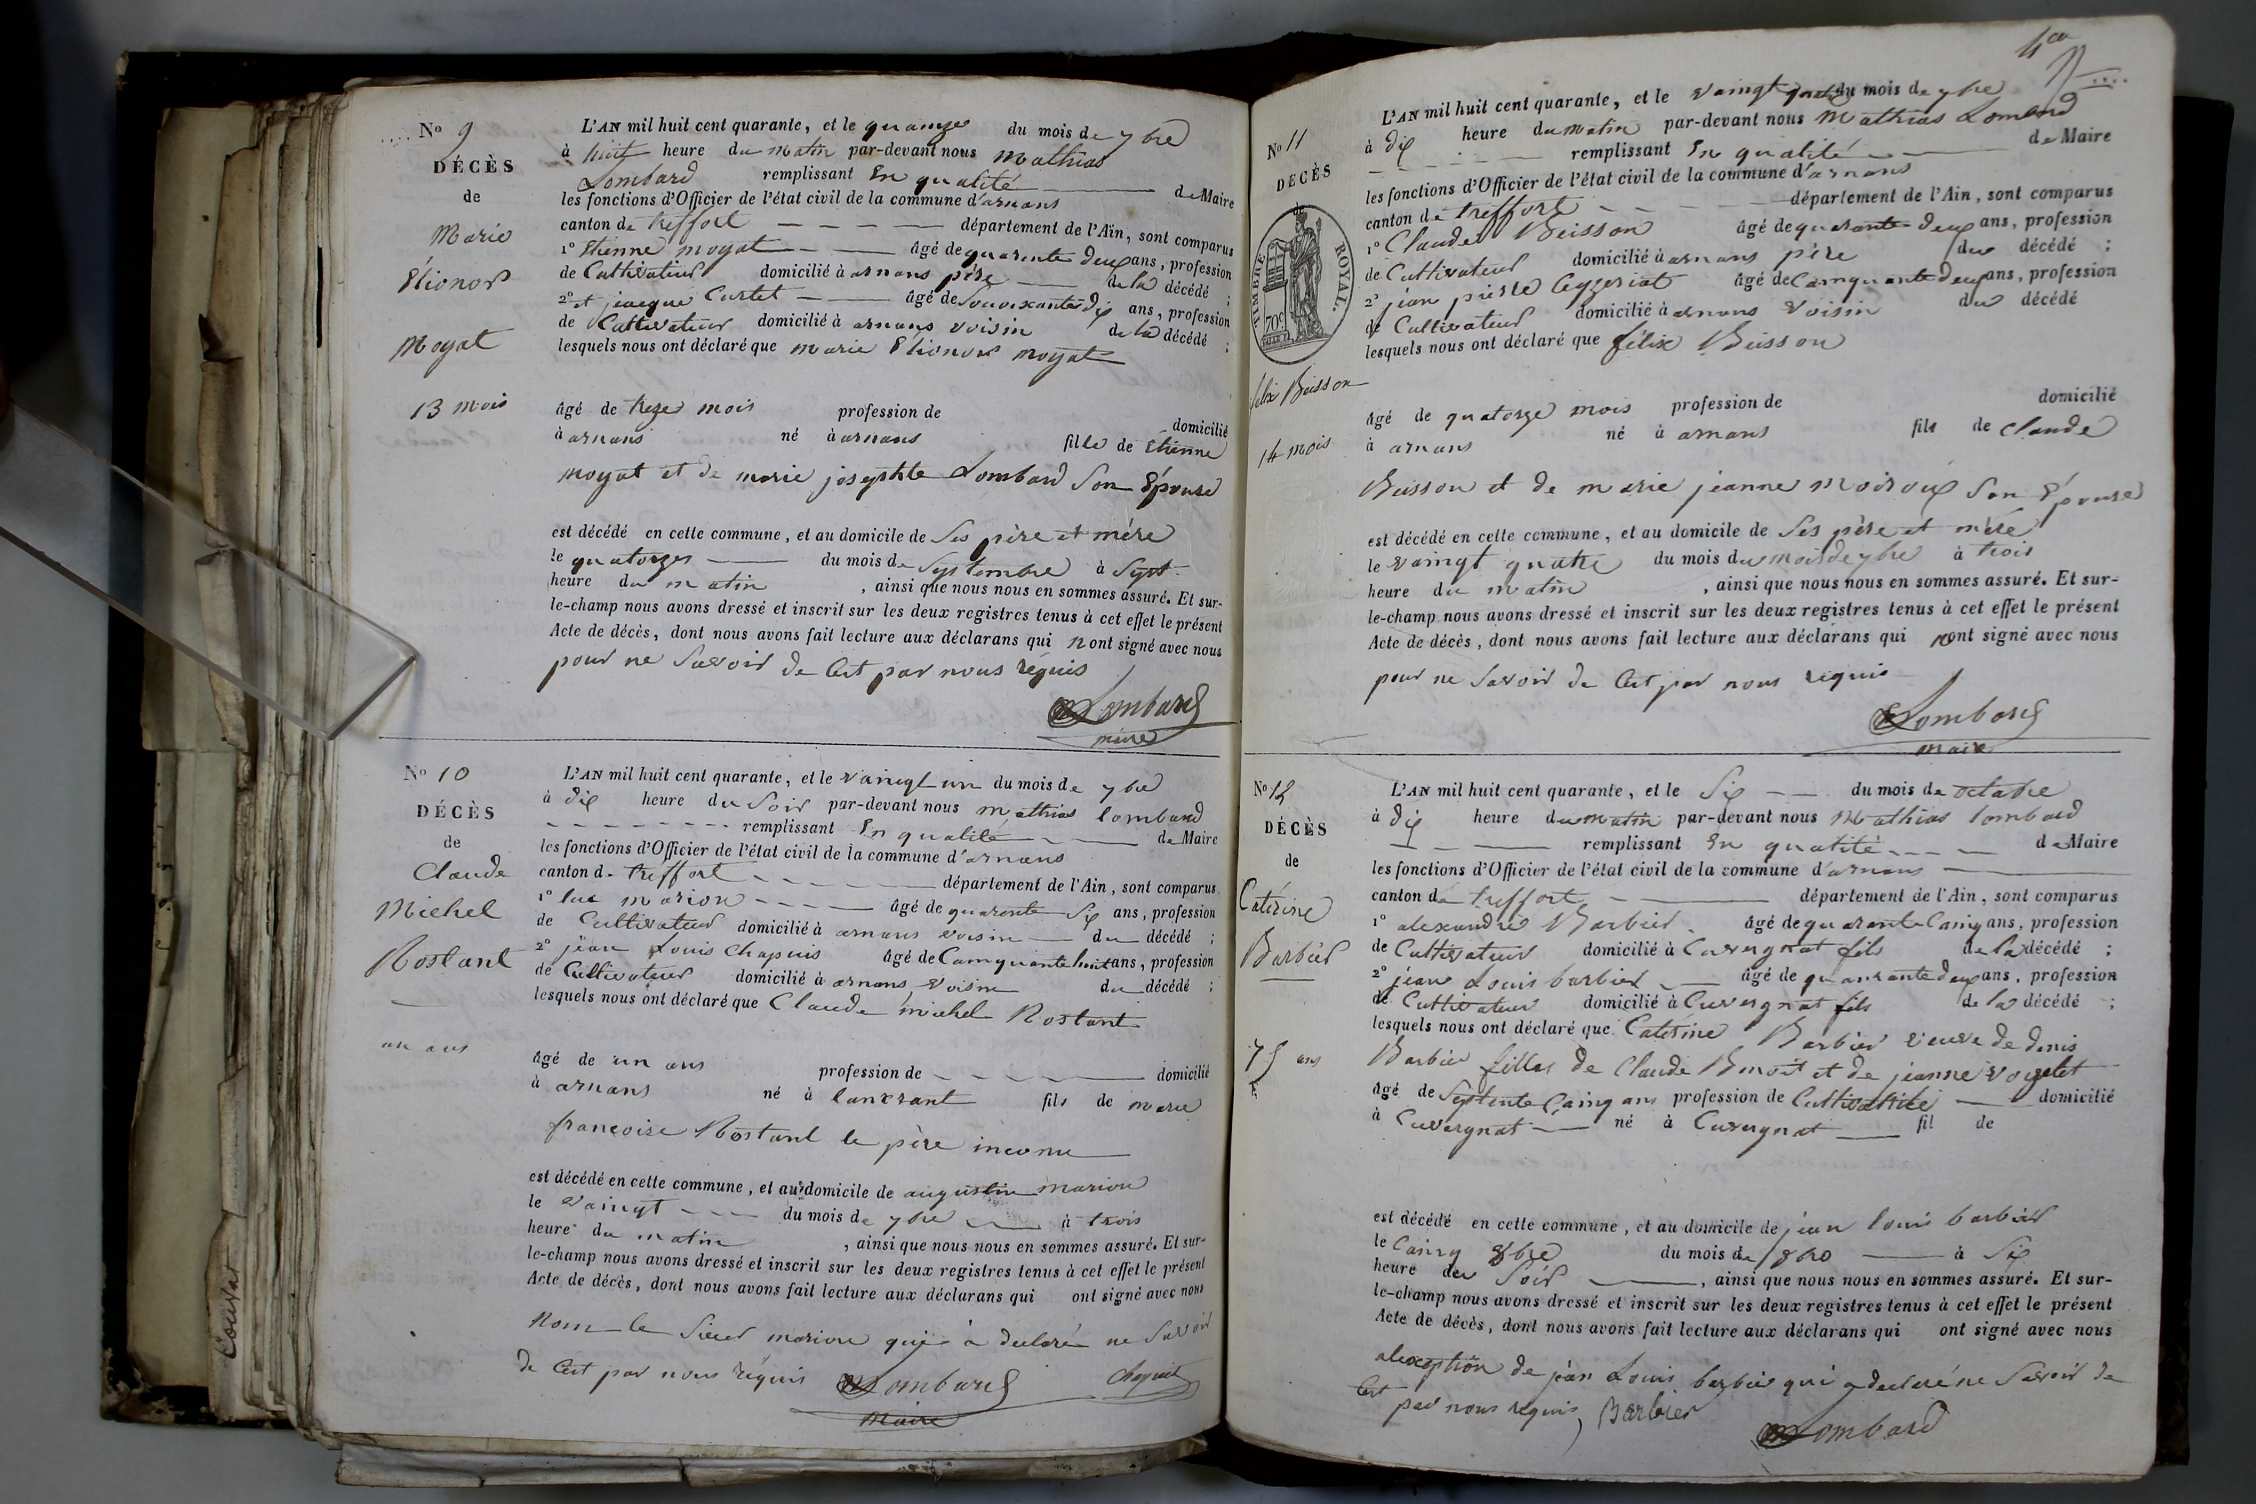 No 9
DÉCÈS
de
Marie
Élionor
Moyat
13 mois
L'AN mil huit cent quarante, et le quainze du mois de 7bre
à huit heure du matin par-devant nous Mathias
Lombard remplissant En qualité de Maire
les fonctions d'Officier de l'état civil de la commune d'arnans
canton de treffort département de l'Ain, sont comparus
1° Etienne moyat âgé de quarente deux ans, profession
de Cultivateur domicilié à arnans père de la décédé ;
2° et jacque Curtet âgé de Souoixante dix ans, profession
de Cultivateur domicilié à arnans voisin de la décédé ;
lesquels nous ont déclaré que marie Elionor moyat
âgé de treze mois profession de domicilié
à arnans né à arnans fille de Etienne
moyat et de marie josephte Lombard Son Épouse
est décédé en cette commune, et au domicile de Ses père et mére
le quatorze du mois de Septembre à Sept
heure du matin, ainsi que nous nous en sommes assuré. Et sur-
le-champ nous avons dressé et inscrit sur les deux registres tenus à cet effet le présent
Acte de décès, dont nous avons fait lecture aux déclarans qui nont signé avec nous
pour ne Savoir de Cest par nous réquis
Lombard
maire
No 10
DÉCÈS
de
Claude
Michel
Rostant
un ans
L'AN mil huit cent quarante, et le vaingt un du mois de 7bre
à dix heure du Soir par-devant nous mathias lombard
remplissant En qualité de Maire
les fonctions d'Officier de l'état civil de la commune d'arnans
canton de treffort département de l'Ain, sont comparus
1° luc marion âgé de quarente Six ans, profession
de Cultivateur domicilié à arnans voisin du décédé ;
2° jean Louis chapuis âgé de Cainquante huit ans, profession
de Cultivateur domicilié à arnans voisin du décédé ;
lesquels nous ont déclaré que Claude michel Rostant
âgé de un ans profession de domicilié
à arnans né à fils de marie
francoise Rostant le père inconu
est décédé en cette commune, et au domicile de augustin marion
le vaingt du mois de 7bre à trois
heure du matin, ainsi que nous nous en sommes assuré. Et sur-
le-champ nous avons dressé et inscrit sur les deux registres tenus à cet effet le présent
Acte de décès, dont nous avons fait lecture aux déclarans qui ont signé avec nous
Nom le Sieur marion qui à declaré ne Savoir
de Cest par nous réquis Lombard Chapuis
Maire
No 11
DÉCÈS
de
TIMBRE ROYAL.
70c
félix Buisson
14 mois
L'AN mil huit cent quarante, et le vaingt quatre du mois de 7bre
à dix heure du matin par-devant nous Mathias Lombard
remplissant En qualité de Maire
les fonctions d'Officier de l'état civil de la commune d'arnans
canton de treffort département de l'Ain, sont comparus
1° Claude Buisson âgé de quarante deux ans, profession
de Cultivateur domicilié à arnans père du décédé ;
2° jean pierre âgé de Cainquante deux ans, profession
de Cultivateur domicilié à arnans voisin du décédé
lesquels nous ont déclaré que félix Buisson
âgé de quatorze mois profession de domicilié
à arnans né à arnans fils de claude
Buisson et de marie jeanne moiroux Son Épouse
est décédé en cette commune, et au domicile de Ses père et mére
le vaingt quatre du mois du mois de 7bre à trois
heure du matin, ainsi que nous nous en sommes assuré. Et sur-
le-champ nous avons dressé et inscrit sur les deux registres tenus à cet effet le présent
Acte de décès, dont nous avons fait lecture aux déclarans qui nont signé avec nous
pour ne Savoir de Cest par nous requis
Lombard
maire
No 12
DÉCÈS
de
Catérine
Barbier
75 ans
L'AN mil huit cent quarante, et le Six du mois de octobre
à dix heure du matin par-devant nous Mathias lombard
remplissant En qualité de Maire
les fonctions d'Officier de l'état civil de la commune d'arnans
canton de treffort département de l'Ain, sont comparus
1° alexandre Barbier âgé de quarante Cainq ans, profession
de Cultivateur domicilié à Cuvergnat fils de la décédé ;
2° jean Louis barbier âgé de quarante deux ans, profession
de Cultivateur domicilié à Cuvergnat fils de la décédé ;
lesquels nous ont déclaré que Catérine Barbier veuve de denis
Barbier filles de Claude Benoit et de jeanne
âgé de Septente Cainq ans profession de Cultivatrice domicilié
à Cuvergnat né à Cuvergnat fil de
est décédé en cette commune, et au domicile de jean louis barbier
le Cainq 8bre du mois de 8bre à Six
heure du Soir, ainsi que nous nous en sommes assuré. Et sur-
le-champ nous avons dressé et inscrit sur les deux registres tenus à cet effet le présent
Acte de décès, dont nous avons fait lecture aux déclarans qui ont signé avec nous
alexeption de jean Louis barbier qui a declaré ne Savoir de
Cest par nous requis, Barbier
Lombard